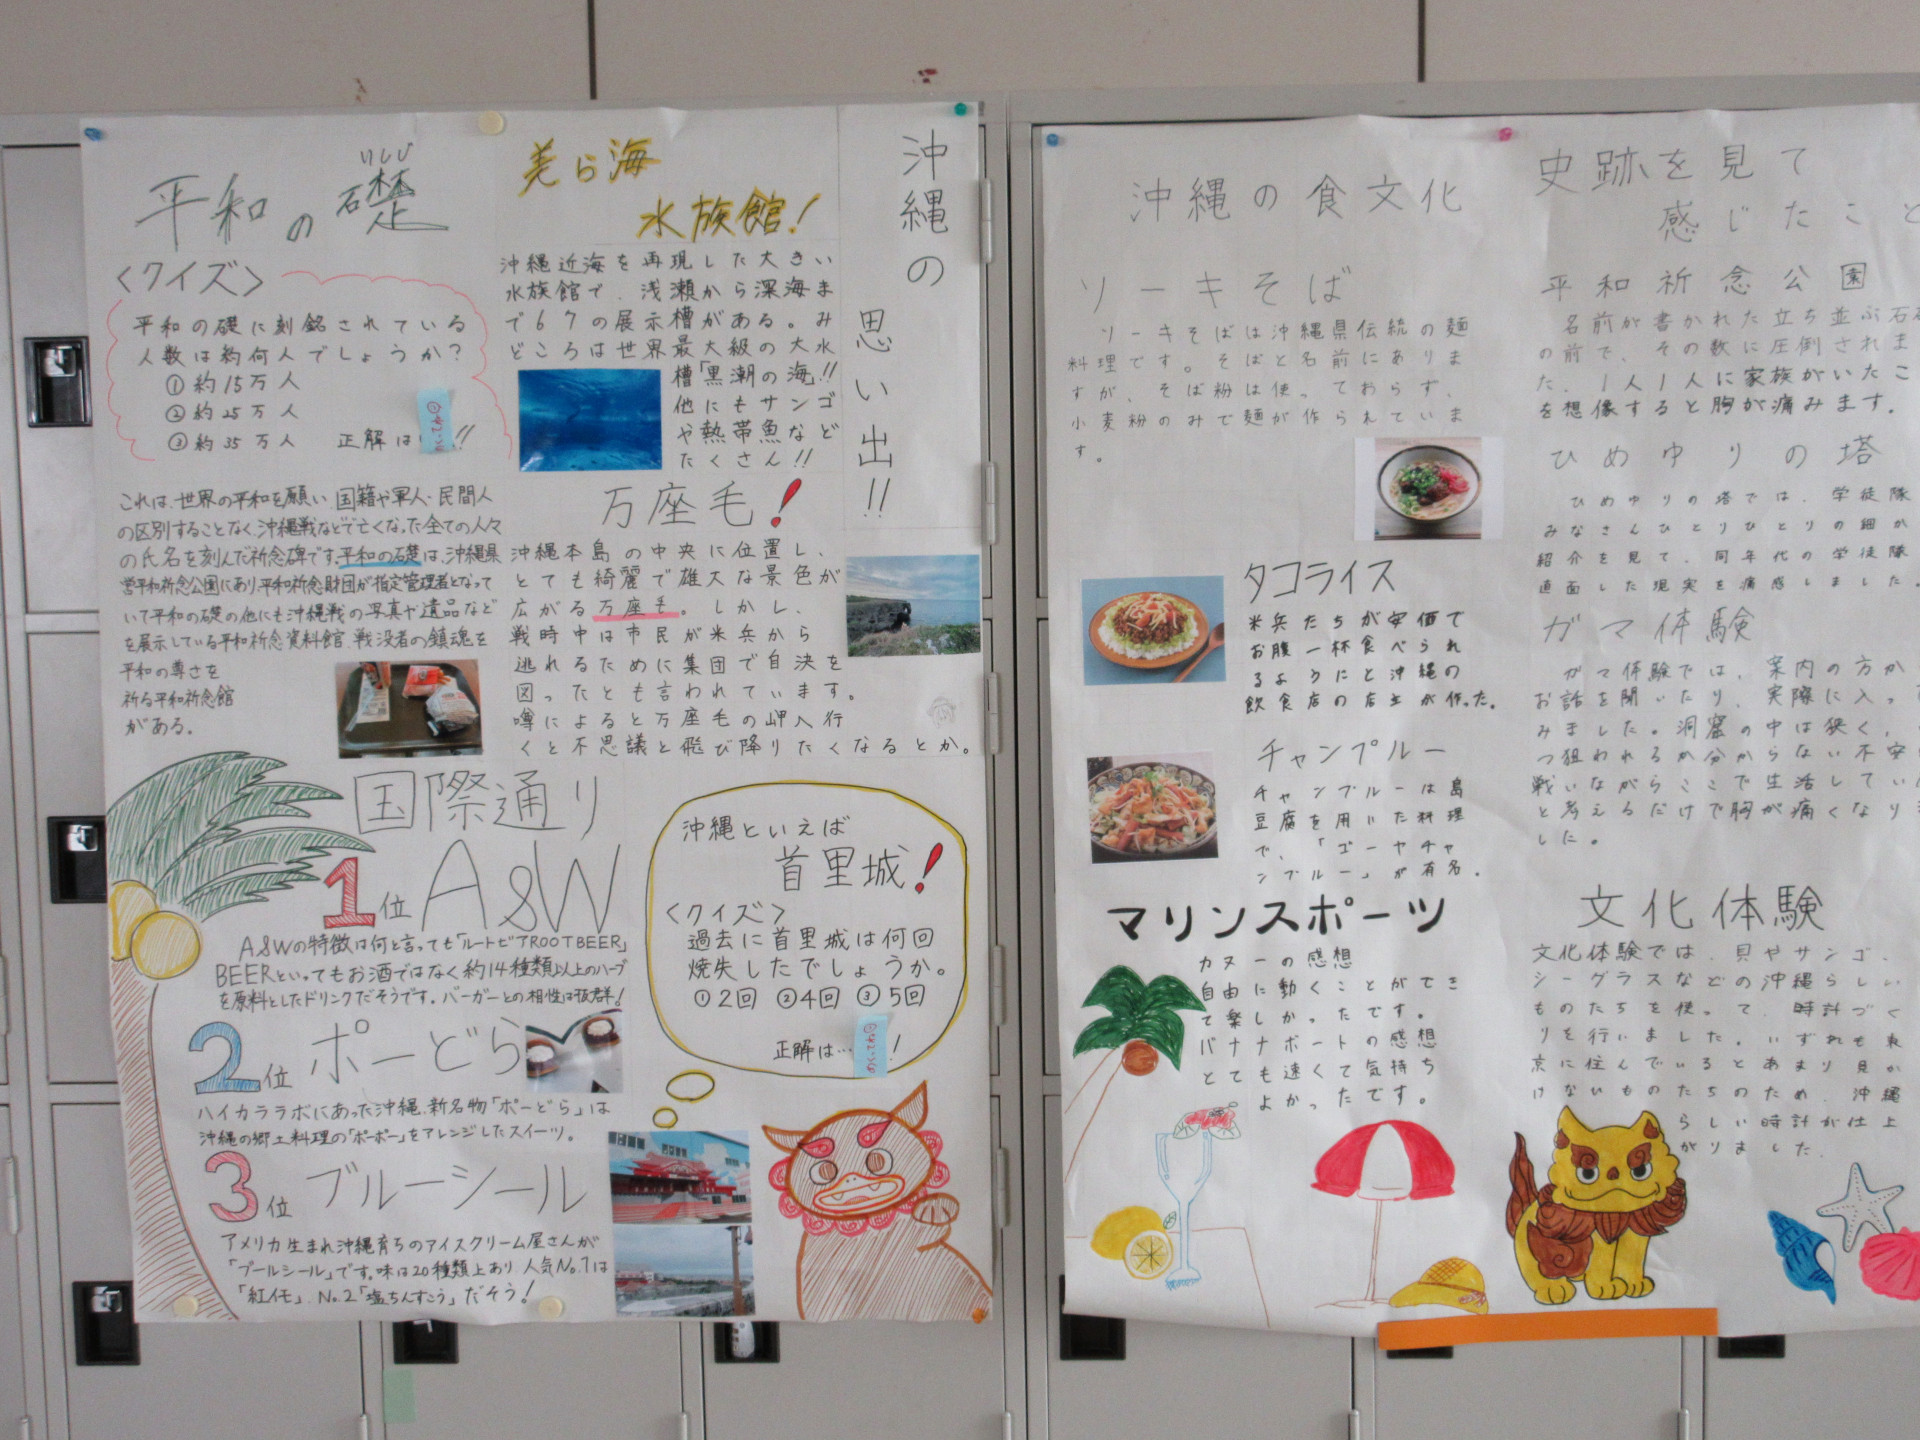 沖縄の思い出!!
美ら海
水族館!
沖縄近海を再現した大きい
水族館で、浅瀬から深海ま
で67の展示槽がある。み
どころは世界最大級の大水
槽「黒潮の海」!!
他にもサンゴ
や熱帯魚など
たくさん!!
平和の礎
いしじ
〈クイズ〉
平和の礎に刻銘されている
人数は約何人でしょうか?
①約15万人
②約25万人
③約35万人 正解は !!
これは、世界の平和を願い、国籍や軍人、民間人
の区別することなく、沖縄戦などで亡くなった全ての人々
の氏名を刻んだ祈念碑です。平和の礎は、沖縄県
営平和祈念公園にあり、平和祈念財団が指定管理者となって
いて平和の礎の他にも沖縄戦の写真や遺品など
を展示している平和祈念資料館、戦没者の鎮魂を
平和の尊さを
祈る平和祈念館
がある。
万座毛!
沖縄本島の中央に位置し、
とても綺麗で雄大な景色が
広がる万座毛。しかし、
戦時中は市民が米兵から
逃れるために集団で自決を
図ったとも言われています。
噂によると万座毛の岬へ行
くと不思議と飛び降りたくなるとか。
国際通り
1位 A&W
A&Wの特徴は何と言っても「ルートビアROOTBEER」
BEERといってもお酒ではなく約14種類以上のハーブ
を原料としたドリンクだそうです。バーガーとの相性は抜群!
2位 ポーどら
ハイカララボにあった沖縄新名物「ポーどら」は
沖縄の郷土料理の「ポーポー」をアレンジしたスイーツ。
3位 ブルーシール
アメリカ生まれ沖縄育ちのアイスクリーム屋さんが
「ブールシール」です。味は20種類上あり人気No.1は
「紅イモ」、No.2「塩ちんすこう」だそう!
沖縄といえば
首里城!
〈クイズ〉
過去に首里城は何回
焼失したでしょうか。
①2回 ②4回 ③5回
正解は… !
沖縄の食文化
ソーキそば
ソーキそばは沖縄県伝統の麺
料理です。そばと名前にありま
すが、そば粉は使っておらず、
小麦粉のみで麺が作られていま
す。
タコライス
米兵たちが安価で
お腹一杯食べられ
るようにと沖縄の
飲食店の店主が作った。
チャンプルー
チャンプルーは島
豆腐を用いた料理
で、「ゴーヤチャ
ンプルー」が有名。
マリンスポーツ
カヌーの感想
自由に動くことができ
て楽しかったです。
バナナボートの感想
とても速くて気持ち
よかったです。
史跡を見て
感じたこと
平和祈念公園
名前が書かれた立ち並ぶ石
の前で、その数に圧倒されま
た。1人1人に家族がいたこ
を想像すると胸が痛みます。
ひめゆりの塔
ひめゆりの塔では、学徒隊
みなさんひとりひとりの細か
紹介を見て、同年代の学徒隊
直面した現実を痛感しました。
ガマ体験
ガマ体験では、案内の方か
お話を聞いたり、実際に入っ
みました。洞窟の中は狭く、
つ狙われるか分からない不安
戦いながらここで生活してい
と考えるだけで胸が痛くなり
した。
文化体験
文化体験では、貝やサンゴ、
シーグラスなどの沖縄らしい
ものたちを使って、時計づく
りを行いました。いずれも東
京に住んでいるとあまり見か
けないものたちのため、沖縄
らしい時計が仕上
がりました。